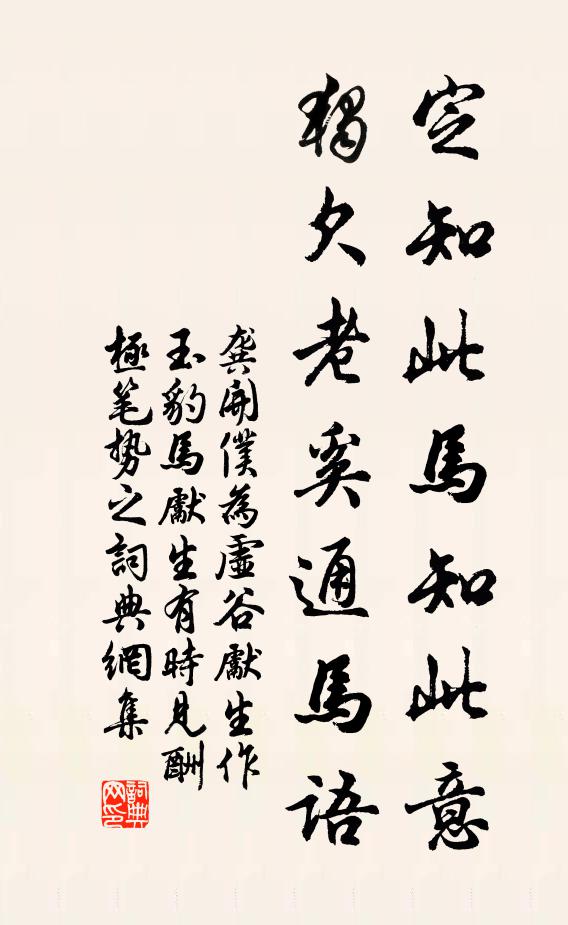 定知此馬知此意
獨欠老奚通馬語
龔開僕為虛谷獻生作
玉豹馬獻生有時見酬
極笔势之詞典網集
詞典网印